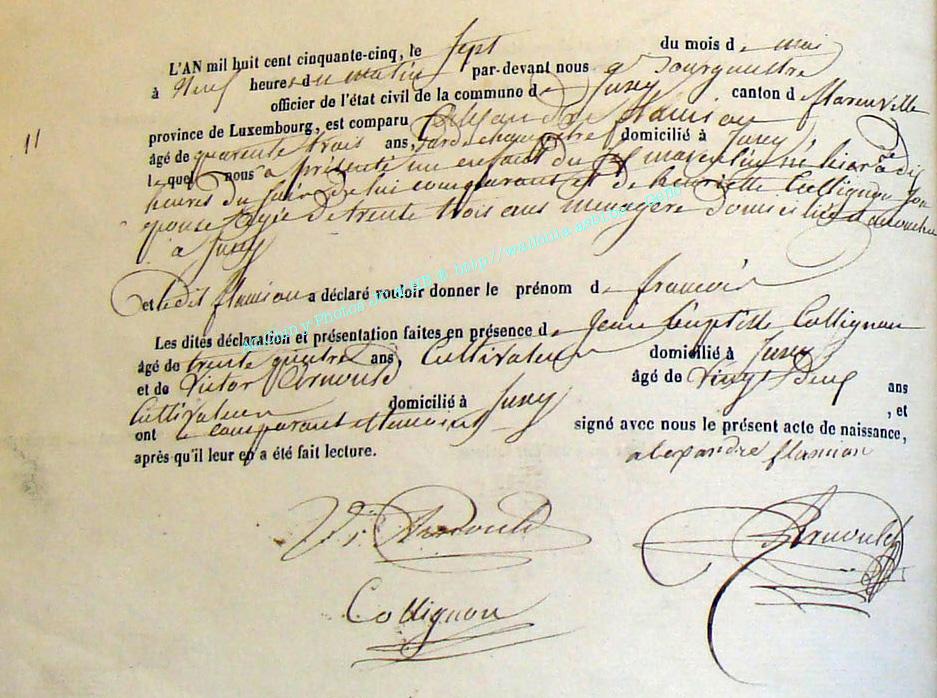 L'AN mil huit cent cinquante-cinq, le sept du mois d e mai
à neuf heures du matin par-devant nous Bourguestre
officier de l'état civil de la commune d e Juzy canton d flarenville
province de Luxembourg, est comparu flamion
11
âgé de quarente trois ans, garde champetre domicilié à Juzy
lequel nous a présenté un enfant du masculin né hier a dix
heures du soir de lui comparant et de henriette Collignon son
epouse agée de trente trois ans menagere domiciliée
a Juzy
et le dit flamion a déclaré vouloir donner le prénom d e francois
Les dites déclaration et présentation faites en présence d e Jean Baptiste Collignon
âgé de trente quatre ans, Cultivateur domicilié à Juzy
et de Victor Arnould âgé de vingt deux ans
Cultivateur domicilié à Juzy , et
ont le comparant et temoins signé avec nous le présent acte de naissance,
après qu'il leur en a été fait lecture.
alexandre flamion
V. Arnould
Arnould
Collignon